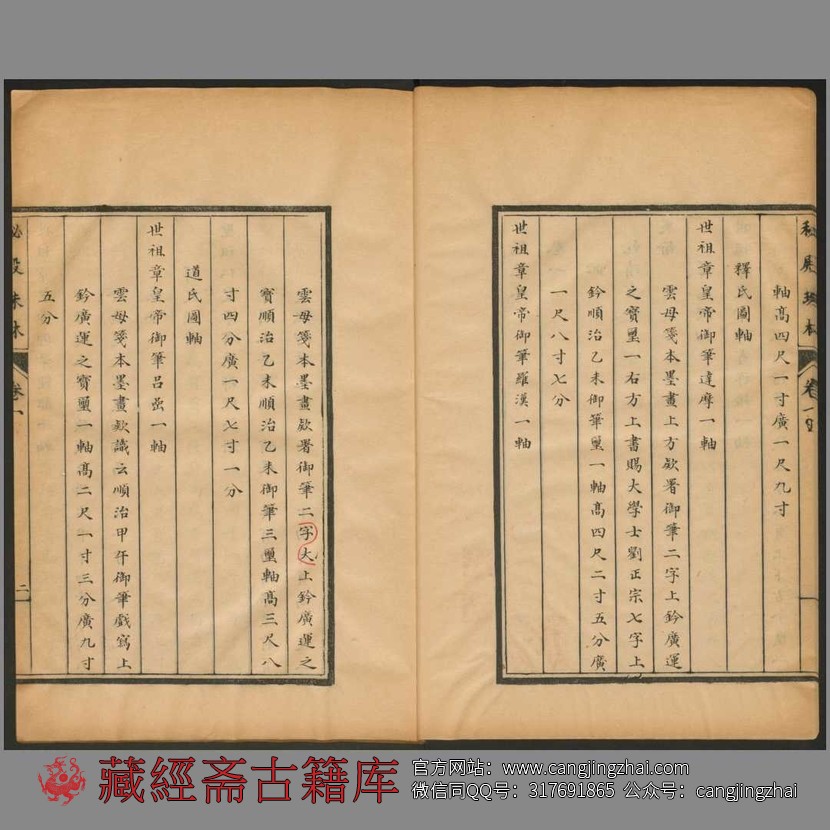 軸髙四尺一寸廣一尺九寸
釋氏圖軸
世祖章皇帝御筆達摩一軸
雲母箋本墨畫上方欵署御筆二字上鈐廣運
之寳璽一右方上書賜大學士劉正宗七字上
鈐順治乙未御筆璽一軸髙四尺二寸五分廣
一尺八寸七分
世祖章皇帝御筆羅漢一軸
雲母箋本墨畫欵署御筆二字大上鈐廣運之
寳順治乙未順治乙未御筆三璽軸髙三尺八
寸四分廣一尺七寸一分
道氏圖軸
世祖章皇帝御筆吕嵒一軸
雲母箋本墨畫欵識云順治甲午御筆戲寫上
鈐廣運之寳璽一軸髙二尺一寸三分廣九寸
五分
珠林
卷一
二
藏經斋古籍库
官方网站：www.cangjingzhai.com
微信同QQ号：317691865 公众号：cangjingzhai